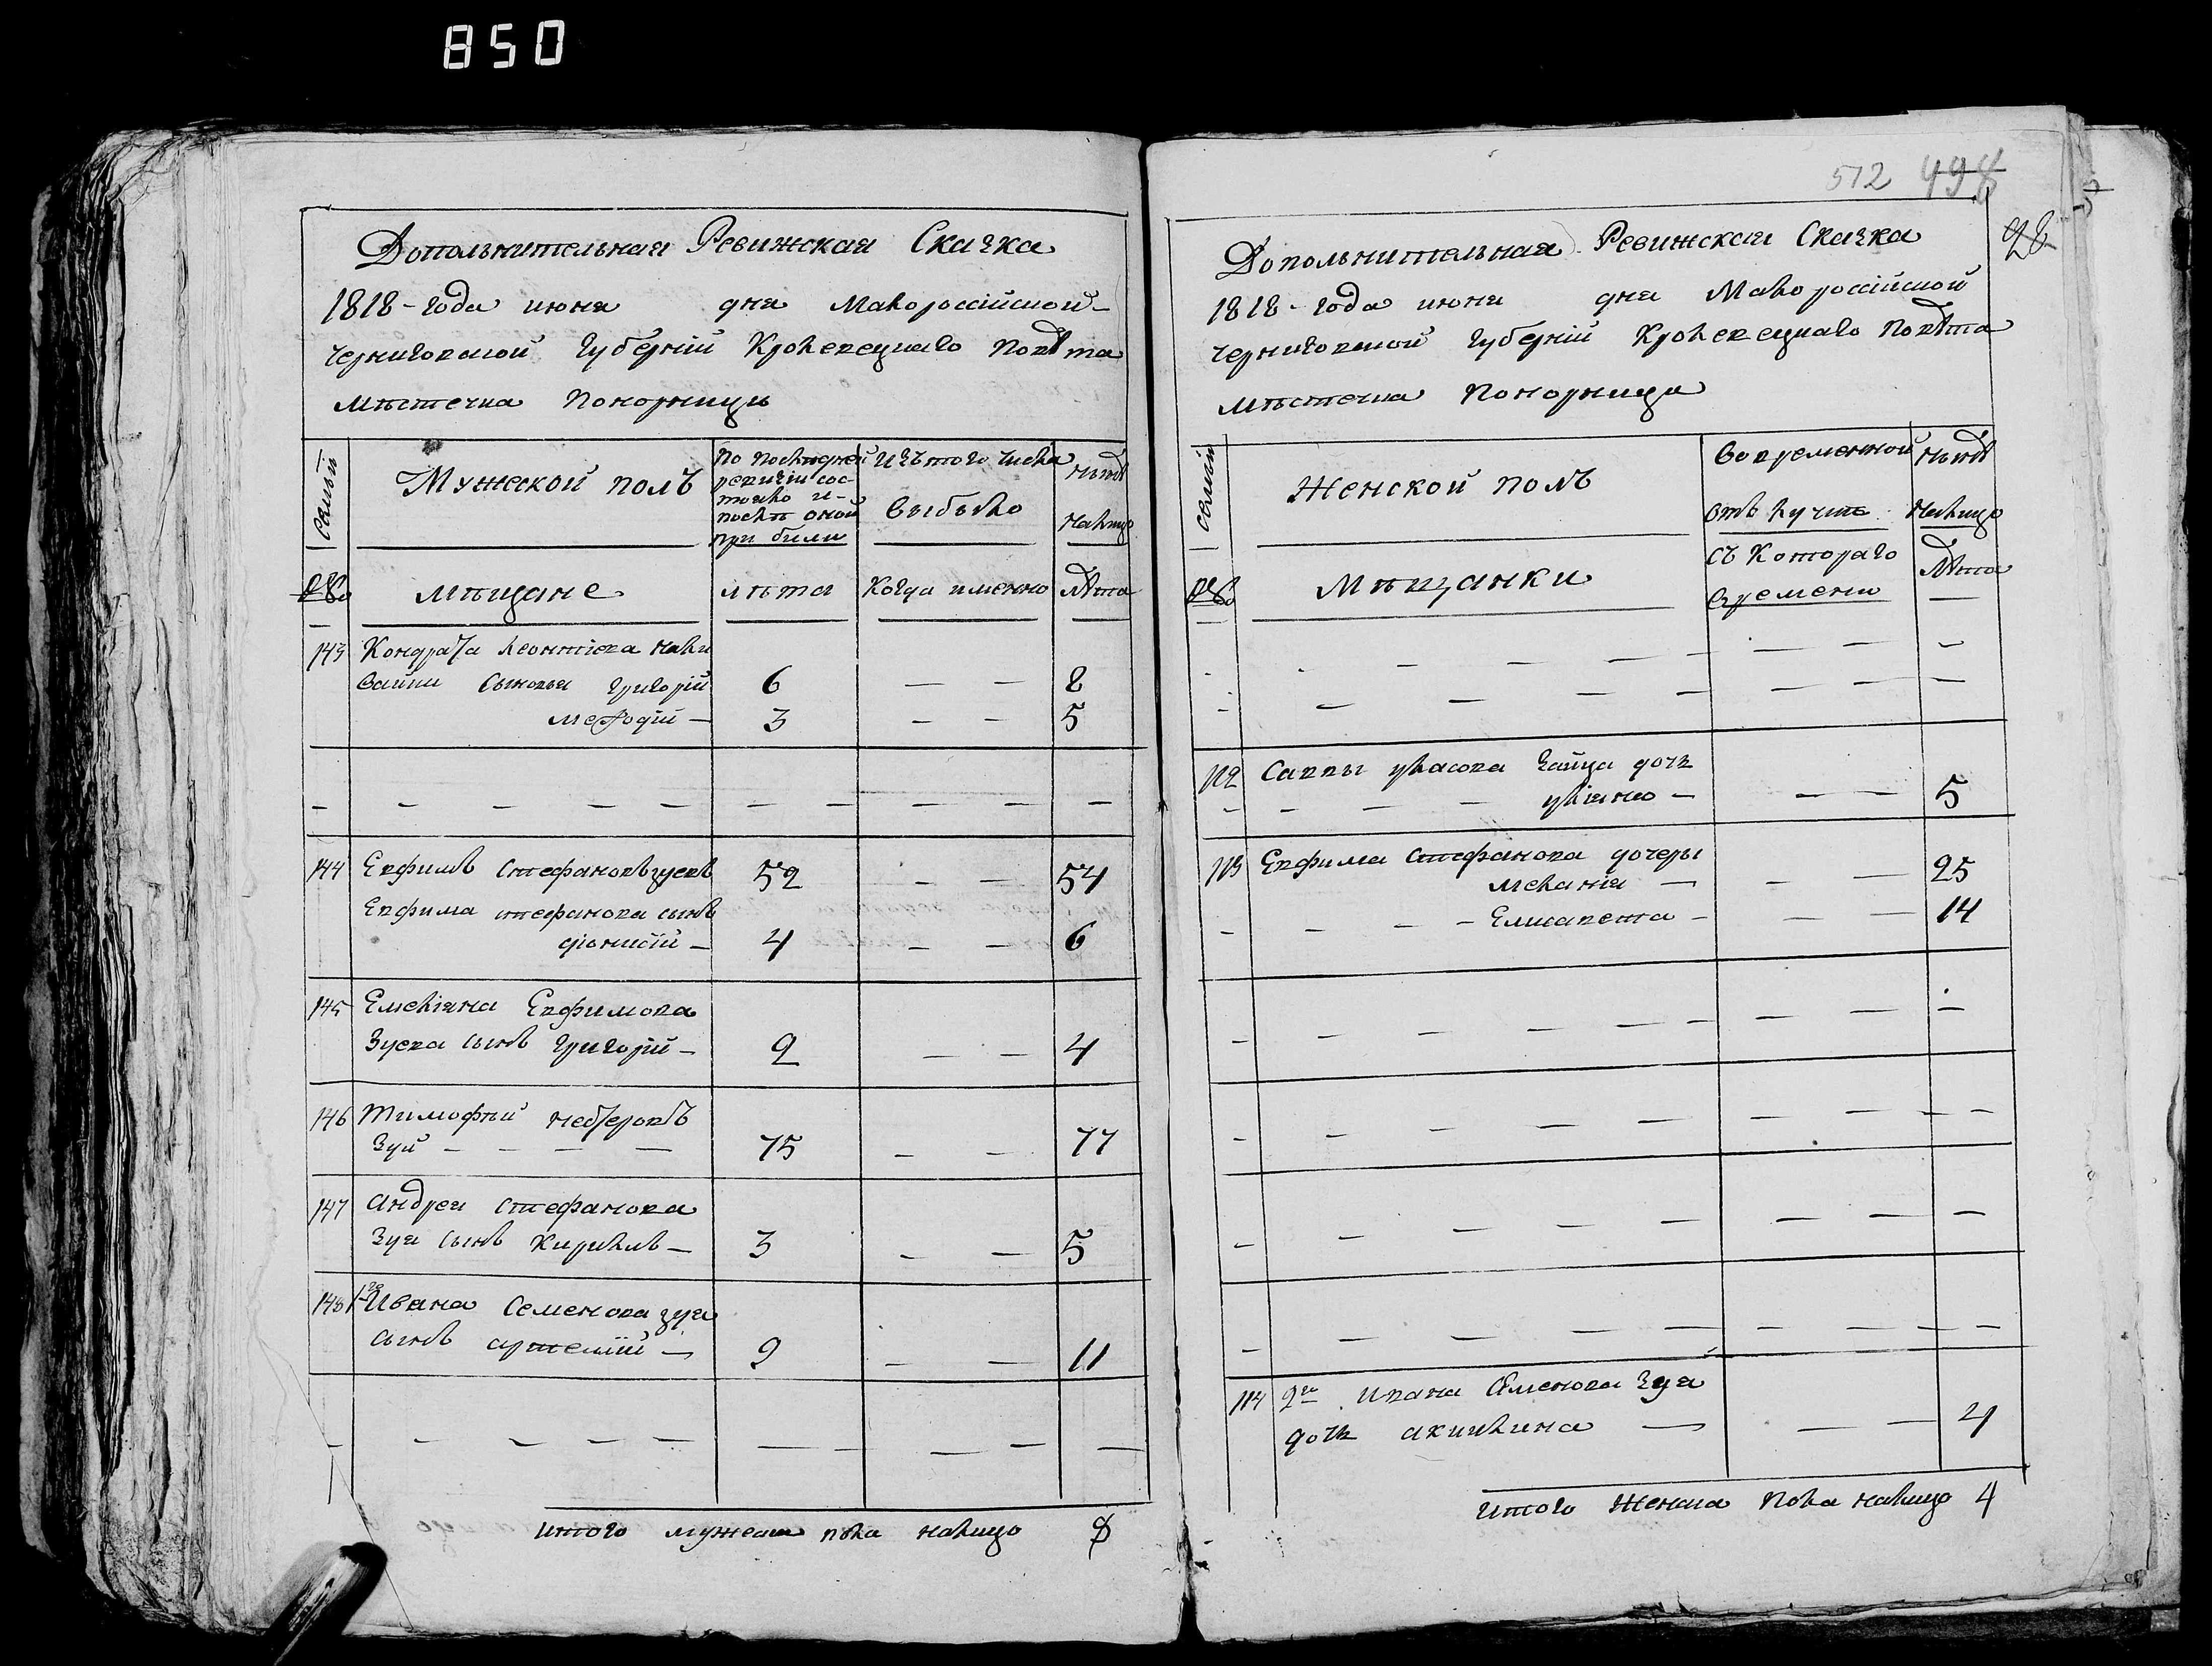 850
512 498
98
Допольнительная Ревижская Сказка
1818-года июня дня Малороссійской
Черниговской Губерніи Кролевецкаго Повѣта
Мѣстечка Понорницы
Семьи
Мужеской полъ
По последней ревизіи состояло и после оной прибыли
Изъ того числа выбыло
Нынѣ налицо
№
мѣщане
лѣта
Когда именно
лѣта
143 Кондрата Леонтіева
сыновья Григорій 6 — — 8
Мефодій — 3 — — 5
144 Евфимъ Стефановъ Зуевъ 52 — — 54
Евфима Стефанова сынъ
Діонисій — 4 — — 6
145 Емеліяна Евфимова
Зуева сынъ Григорій — 2 — — 4
146 Тимофѣй
Зуй — — — — 75 — — 77
147 Андрея Стефанова
Зуя сынъ Кирилъ — 3 — — 5
148 1го Ивана Семенова Зуя
сынъ Артемій — 9 — — 11
Итого мужеска пола налицо 8
Дополънительная Ревижская Сказка
1818-года июня дня Малороссійской
Черниговской Губерніи Кролевецкаго Повѣта
Мѣстечка Понорницы
Семьи
Женской полъ
Во временной отлучке
Нынѣ налицо
№
Мѣщанки
съ котораго времени
Лѣта
112 Саввы Уласова Зайца дочь
Уліяна — — — 5
113 Евфима Стефанова дочеры
Меланія — — — 25
Елисавета — — — 14
114 2го Ивана Семенова Зуя
дочь Акилина — — — 4
Итого женска пола налицо 4